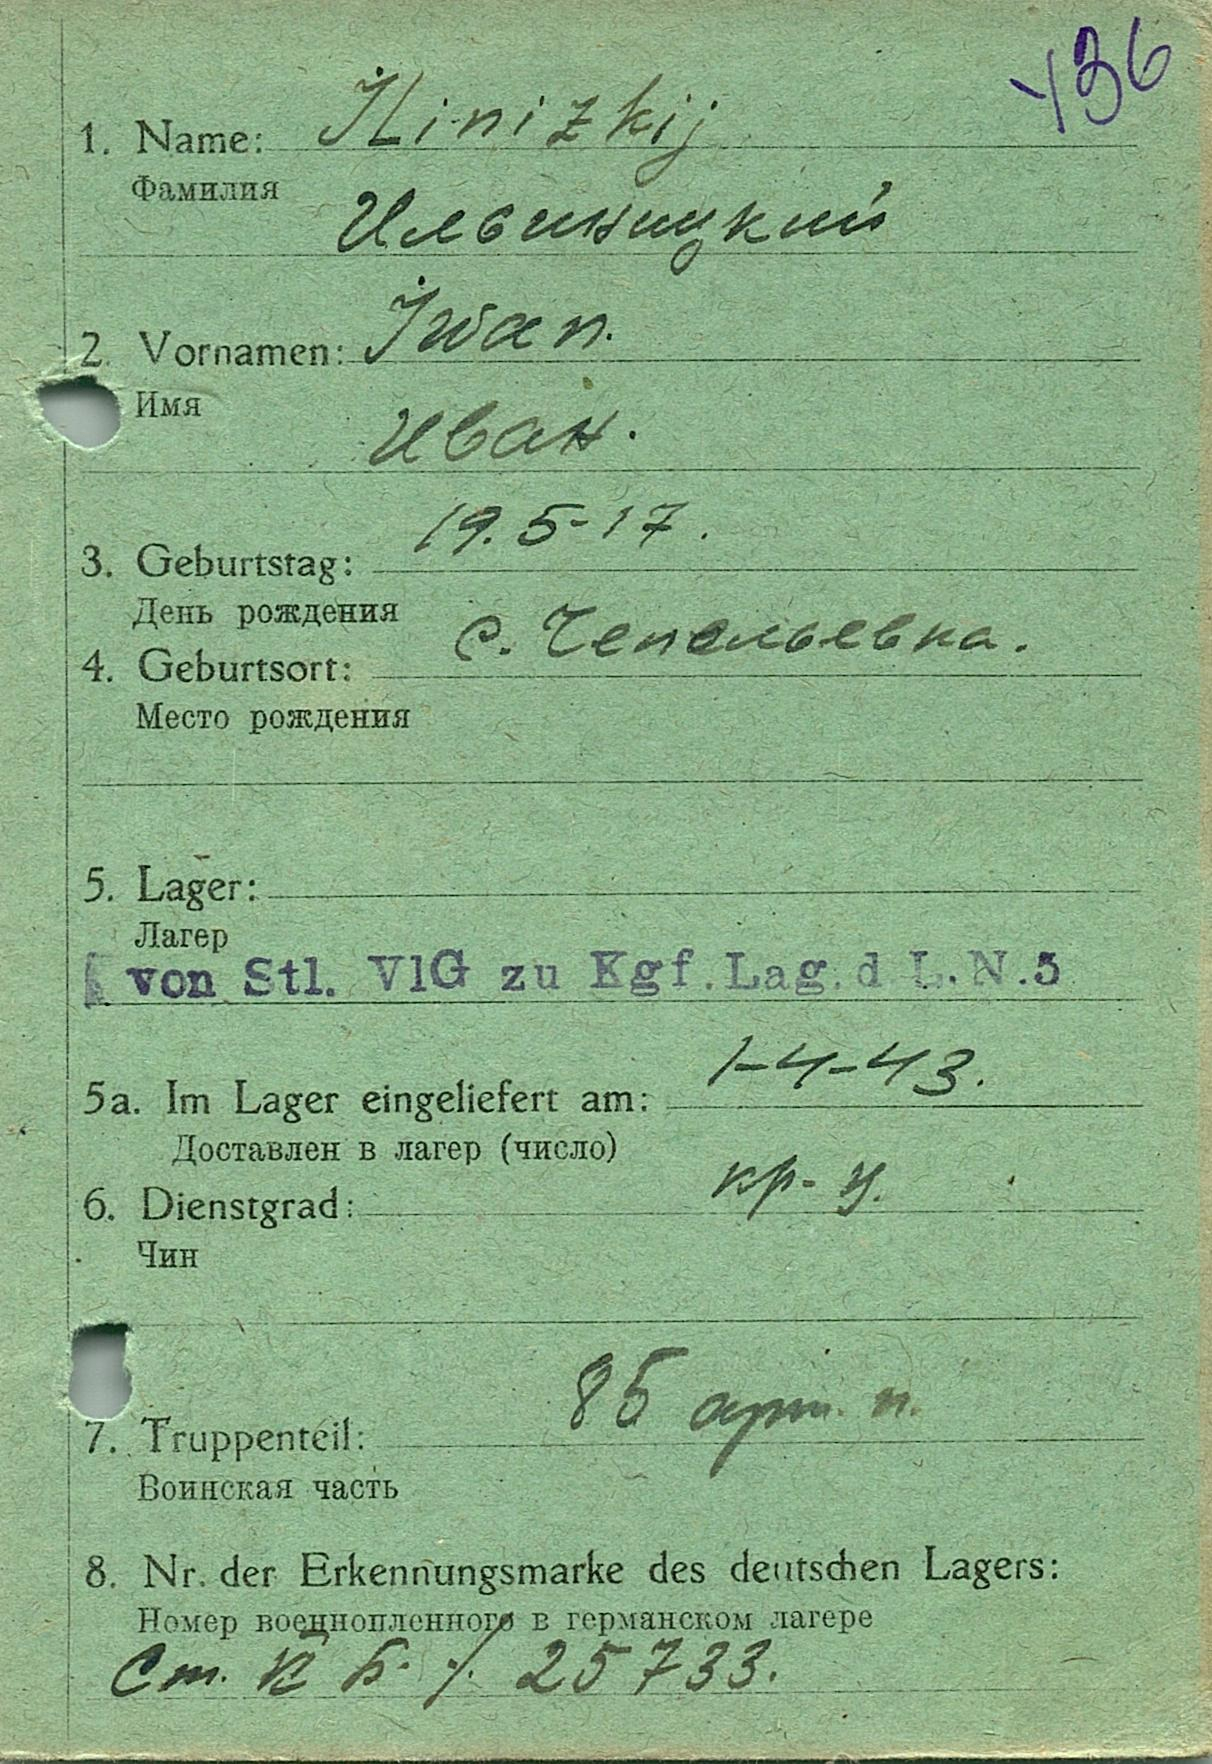 436
1. Name: Ilinizkij
Фамилия
Ильиницкий
2. Vornamen: Iwan.
Имя
Иван.
3. Geburtstag: 19.5-17.
День рождения
4. Geburtsort: с. Чепельевка.
Место рождения
5. Lager:
Лагер
von Stl. VIG zu Kgf. Lag. d L. N. 5
5a. Im Lager eingeliefert am: 1-4-43.
Доставлен в лагер (число)
6. Dienstgrad: кр-ц.
Чин
7. Truppenteil: 85 арт. п.
Воинская часть
8. Nr. der Erkennungsmarke des deutschen Lagers:
Номер военнопленного в германском лагере
Ст. Б. 25733.